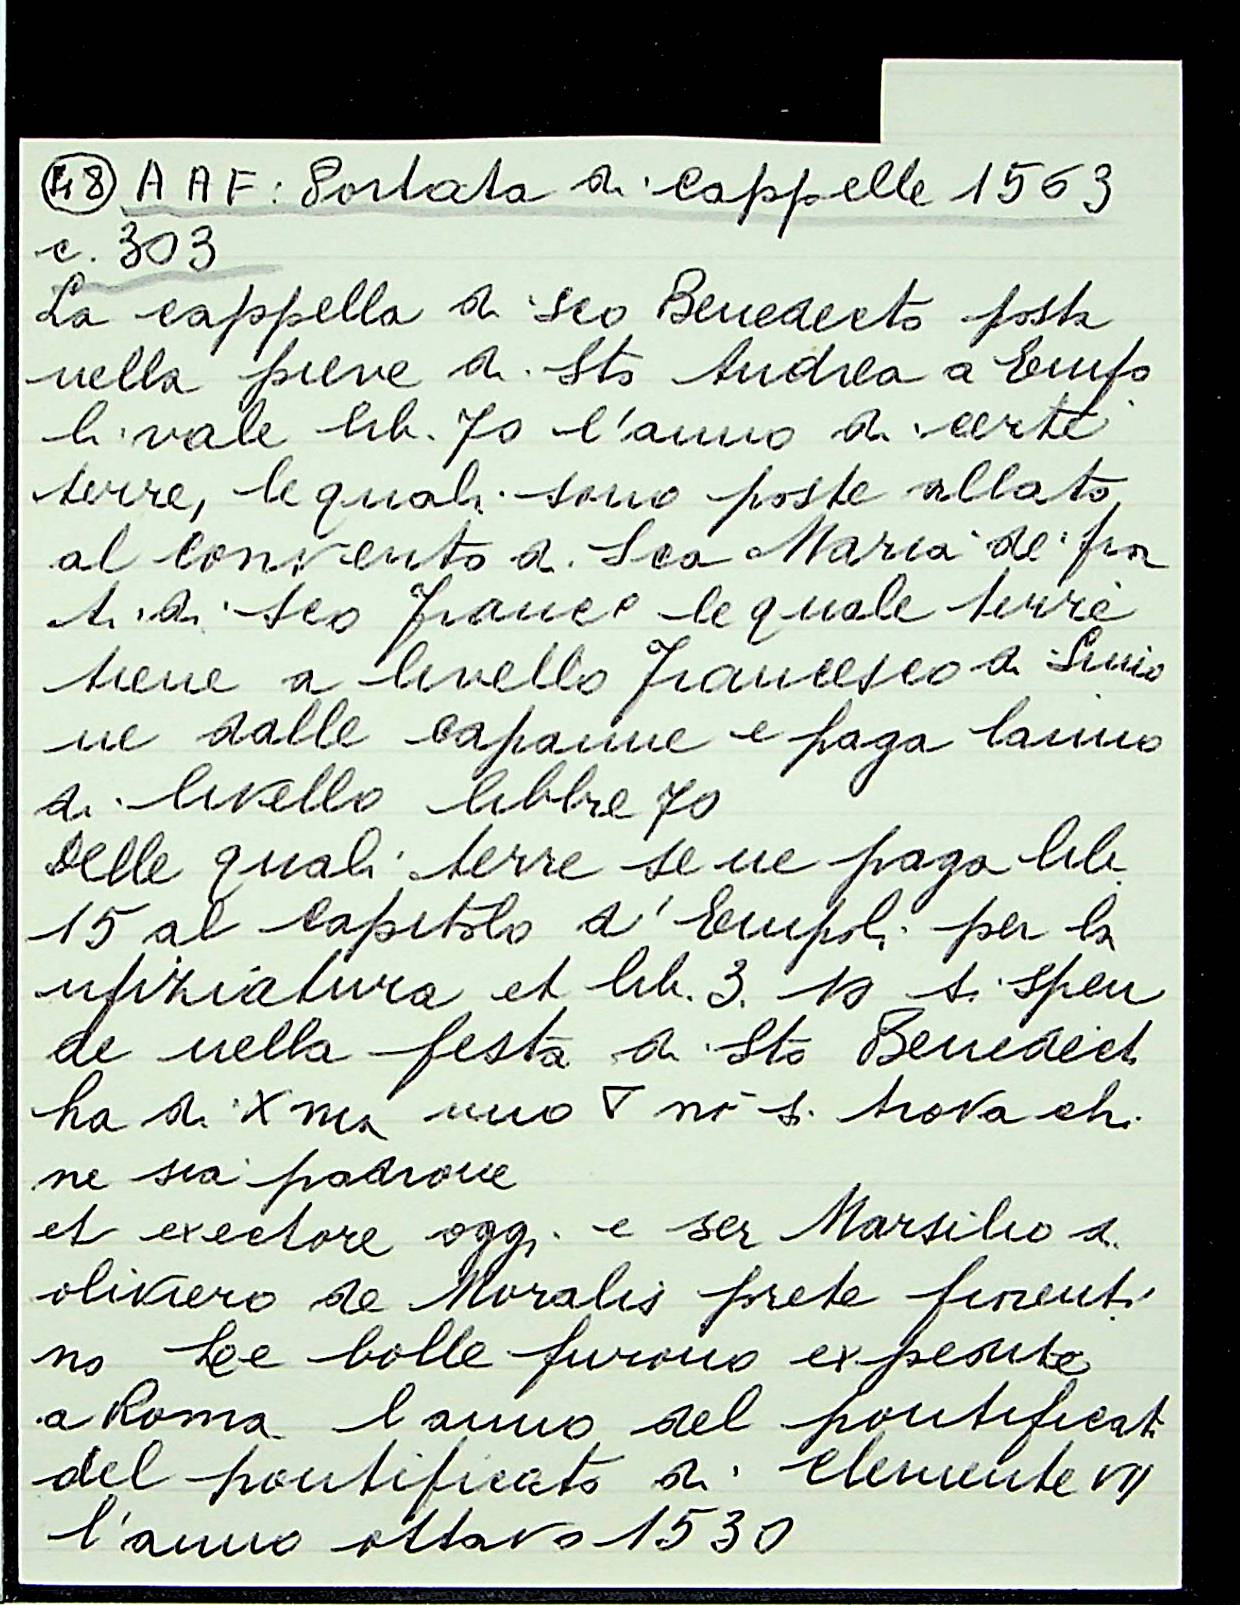 48 A A F: Portata di cappelle 1563
c. 303
La cappella di sco Benedecto posta
nella pieve di Sto Andrea a Empo
li vale lib. 70 l'anno di certe
terre, le quali sono poste allato
al convento di Sca Maria de' fra
ti di sco Franc.o le quale terre
tiene a livello Francesco di Simio
ne dalle capanne e paga lanno
di livello libbre 70
Delle quali terre se ne paga lib.
15 al Capitolo d'Empoli per la
ufiziatura et lib. 3. 10 si spen
de nella festa di Sto Benedect
ha di Xma uno ▽ nō si trova chi
ne sia padrone
et exectore oggi e ser Marsilio di
oliviero de Moralis prete fiorenti
no Le bolle furono expedite
a Roma l anno del pontificat
del pontificato di Clemente VII
l'anno ottavo 1530